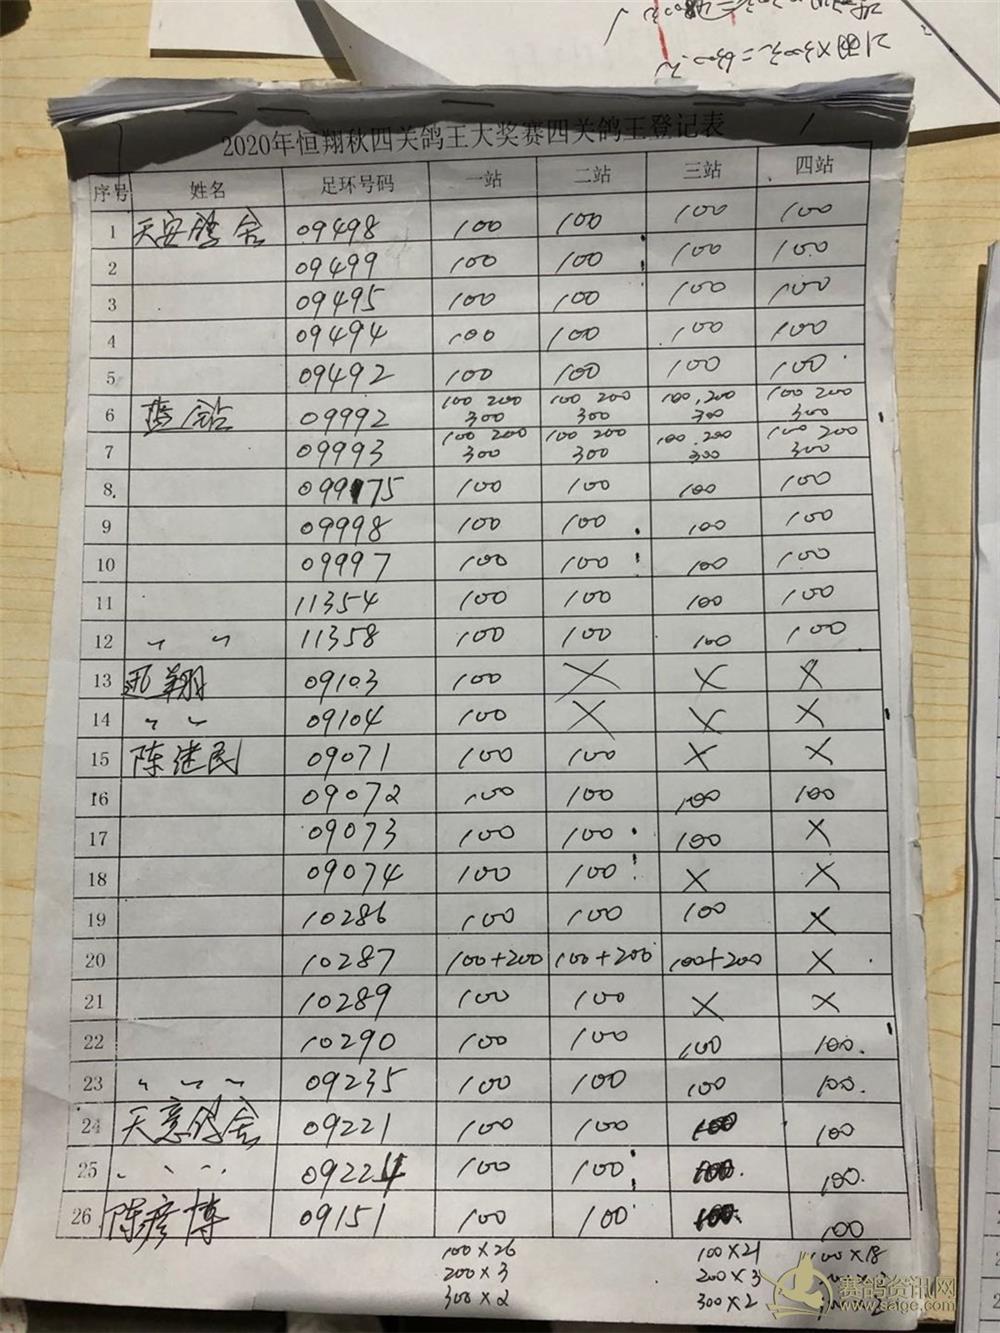 21羽×300元=6300元
2020年恒翔秋四关鸽王大奖赛四关鸽王登记表 1
序号 姓名 足环号码 一站 二站 三站 四站
1 天安鸽舍 09498 100 100 100 100
2 09499 100 100 100 100
3 09495 100 100 100 100
4 09494 100 100 100 100
5 09492 100 100 100 100
6 蓝钻 09992 100 200 300 100 200 300 100,200 300 100 200 300
7 09993 100 200 300 100 200 300 100.200 300 100 200 300
8 09975 100 100 100 100
9 09998 100 100 100 100
10 09997 100 100 100 100
11 11354 100 100 100 100
12 〃 〃 11358 100 100 100 100
13 迅翔 09103 100 × × ×
14 〃 〃 09104 100 × × ×
15 陈建民 09071 100 100 × ×
16 09072 100 100 100 100
17 09073 100 100 100 ×
18 09074 100 100 × ×
19 10286 100 100 100 ×
20 10287 100+200 100+200 100+200 ×
21 10289 100 100 × ×
22 10290 100 100 100 100.
23 〃 〃 〃 09235 100 100 100 100.
24 天意鸽舍 09221 100 100 100 100
25 09224 100 100 100. 100.
26 陈彦博 09151 100 100 100. 100
100×26 100×21 100×18
200×3 200×3
300×2 300×2
赛鸽资讯网
www.saige.com